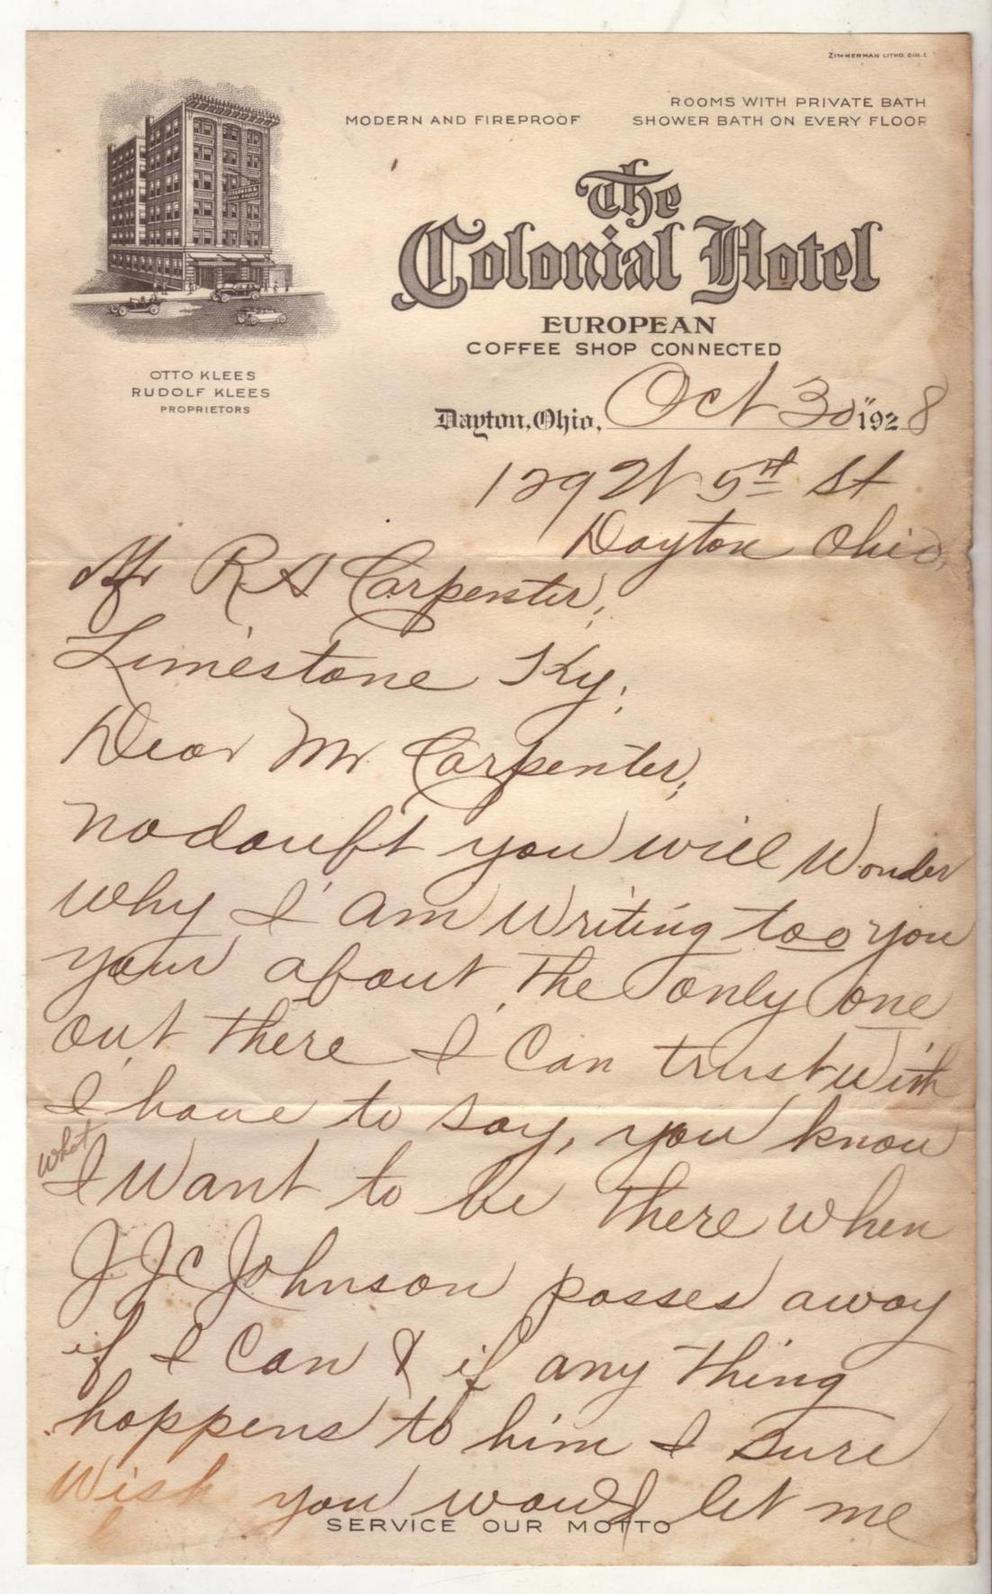 ZIMMERMAN LITHO. CIN. O.
MODERN AND FIREPROOF
ROOMS WITH PRIVATE BATH
SHOWER BATH ON EVERY FLOOR
The
Colonial Hotel
EUROPEAN
COFFEE SHOP CONNECTED
OTTO KLEES
RUDOLF KLEES
PROPRIETORS
Dayton, Ohio, Oct 30" 1928
129 W 5th St
Dayton Ohio,
Mr R A Carpenter,
Limestone Ky,
Dear Mr Carpenter,
no doubt you will Wonder
why I am Writing too you
your about the only one
out there I Can trust with
what
I have to say, you know
I Want to be there when
J J C Johnson passes away
if I Can & if any thing
happens to him I sure
Wish you would let me
SERVICE OUR MOTTO